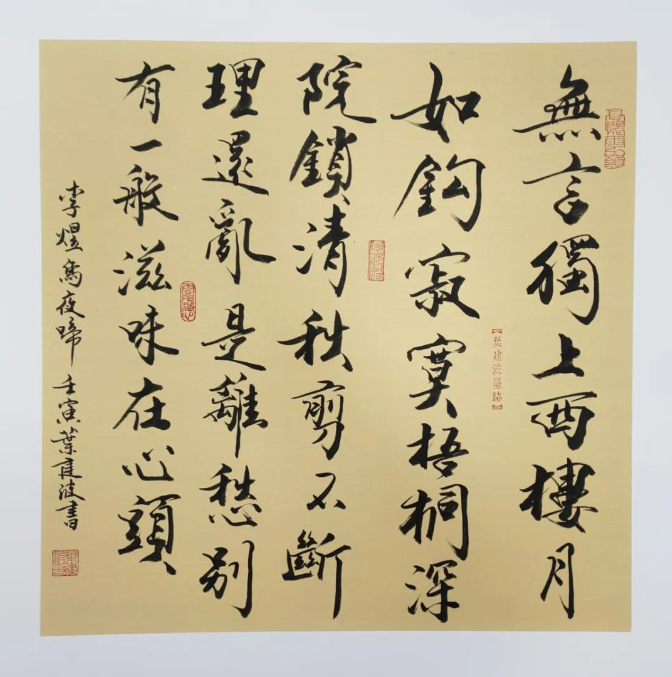 無言獨上西樓月
如鈎寂寞梧桐深
院鎖清秋剪不斷
理還亂是離愁別
有一般滋味在心頭
李煜烏夜啼 壬寅葉建波書
【葉建波墨跡】